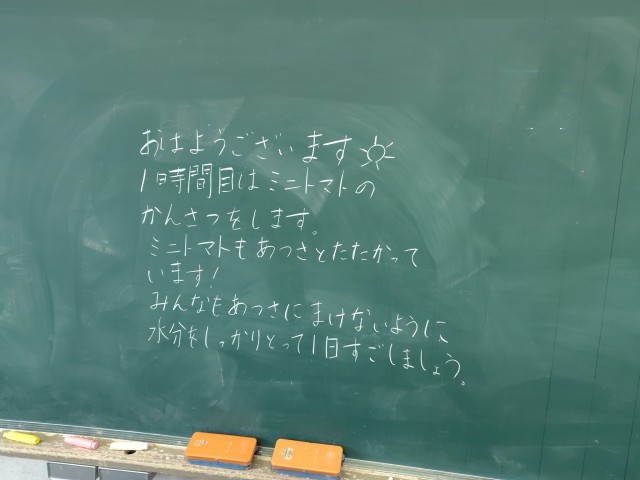 おはようございます
1時間目はミニトマトの
かんさつをします。
ミニトマトもあつさとたたかって
います!
みんなもあつさにまけないように、
水分をしっかりとって1日すごしましょう。